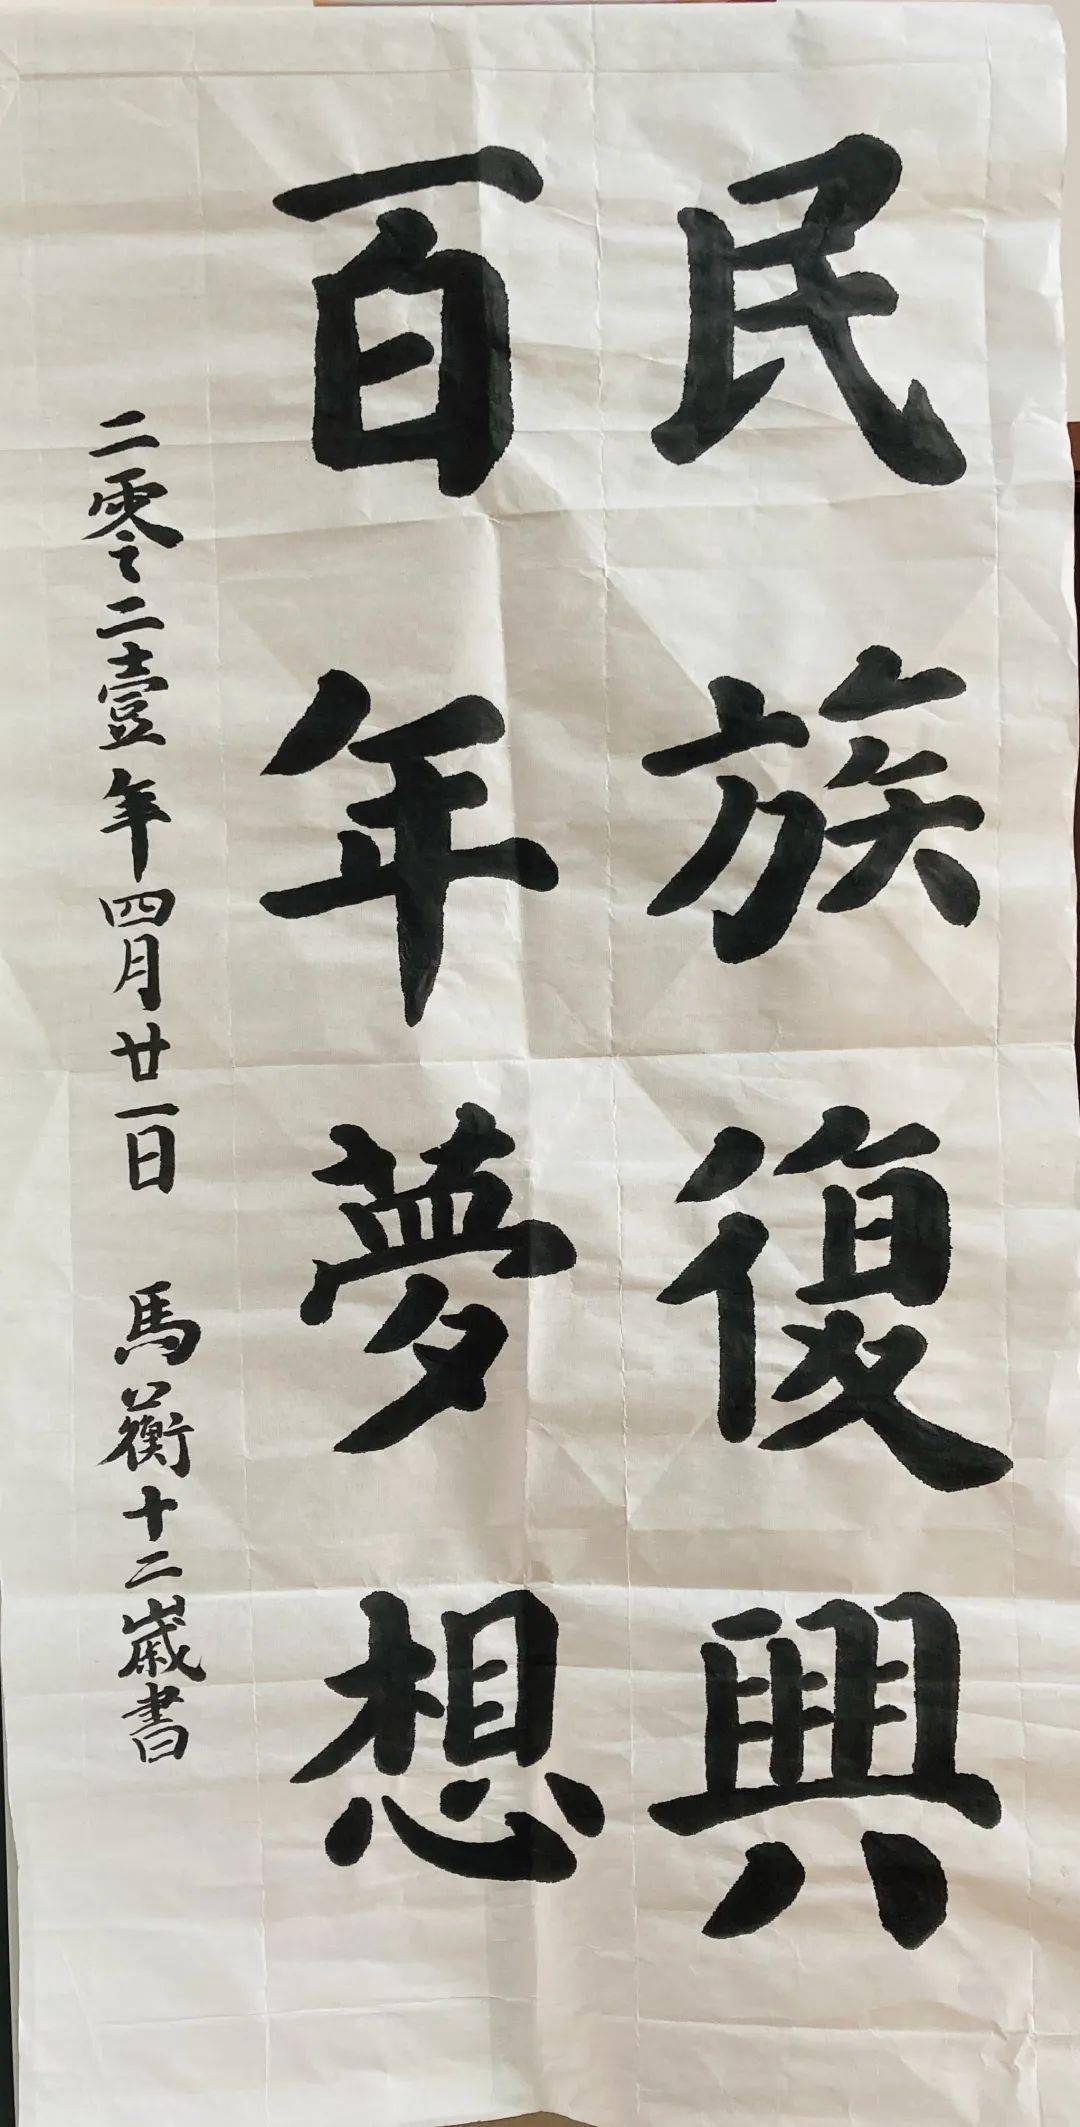 民族復興
百年夢想
二零二壹年四月廿一日 馬蘅十二歲書